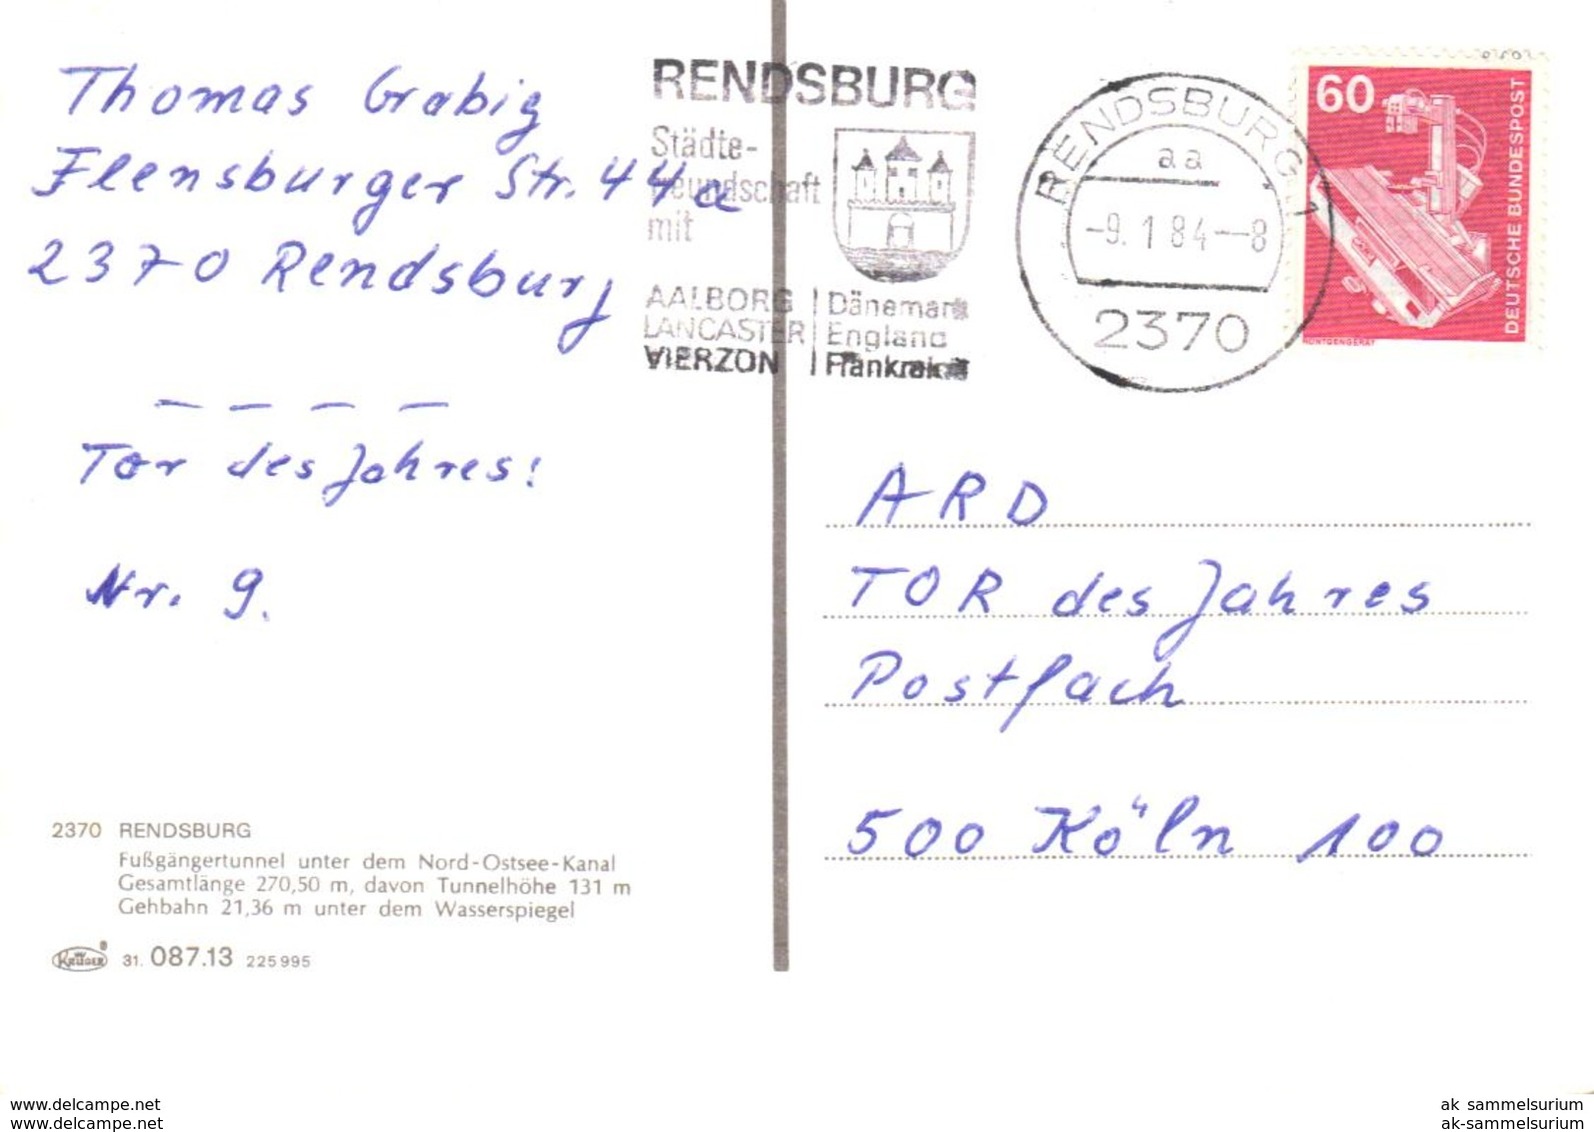 Thomas Grabig
Flensburger Str. 44a
2370 Rendsburg
Tor des Jahres!
Nr. 9.
2370 RENDSBURG
Fußgängertunnel unter dem Nord-Ostsee-Kanal
Gesamtlänge 270,50 m, davon Tunnelhöhe 131 m
Gehbahn 21,36 m unter dem Wasserspiegel
KRÜGER ® 31. 087.13 225995
RENDSBURG
Städte-
freundschaft
mit
AALBORG | Dänemark
LANCASTER | England
VIERZON | Frankreich
RENDSBURG 1
aa
-9.1.84--8
2370
60
DEUTSCHE BUNDESPOST
RÖNTGENGERÄT
ARD
TOR des Jahres
Postfach
500 Köln 100
www.delcampe.net
www.delcampe.net
ak_sammelsurium
ak-sammelsurium